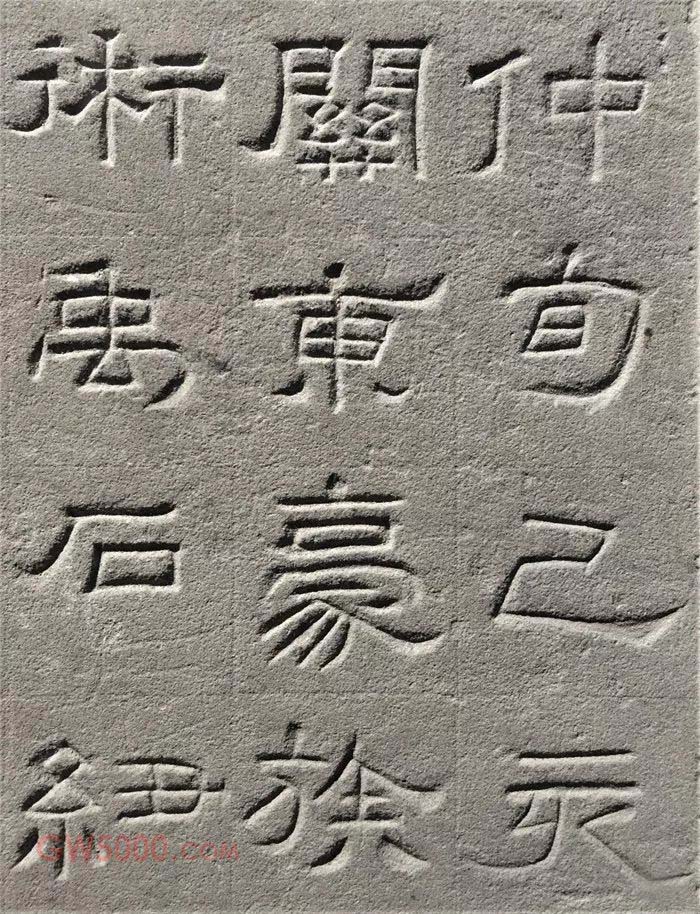 仲旬己亥
關東豪族
術禹石紐
GW5000.COM